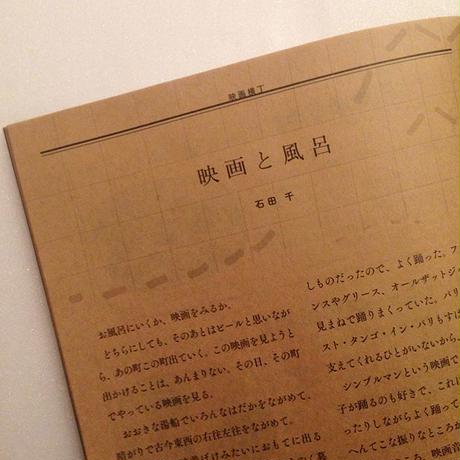 映画横丁
映画と風呂
石田 千
お風呂にいくか、映画をみるか。
どちらにしても、そのあとはビールと思いなが
ら、あの町この町出ていく。この映画を見ようと
出かけることは、あんまりない。その日、その町
でやっている映画を見る。
おおきな湯船でいろんなはだかをながめて、
暗がりで古今東西の右往左往をながめて。
みたいにおもてに出る
しものだったので、よく踊った。フ
ンスやグリース、オールザットジ
見まねで踊りまくっていた。パリ
スト・タンゴ・イン・パリもすば
支えてくれるひとがいないから、
シンプルマンという映画で
子が踊るのも好きで、これに
ったりしながらよく踊って
へんてこな振りなところか
ころ、映画音